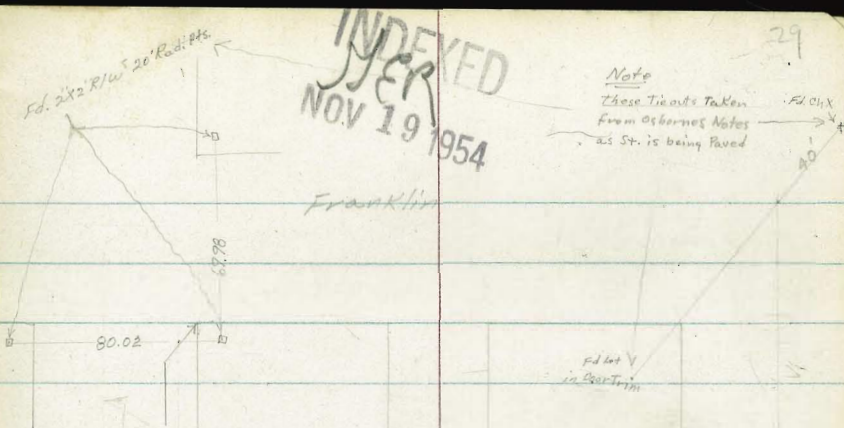 29
Fd. 2"X2" R/W 20' Radi Pts.
INDEXED
HER
NOV 19 1954
Note
These Tieouts Taken
From Osbornes Notes
as St. is being Paved
Fd. Ch X
40'
Franklin
69.98
80.02
Fd
in Door Trim